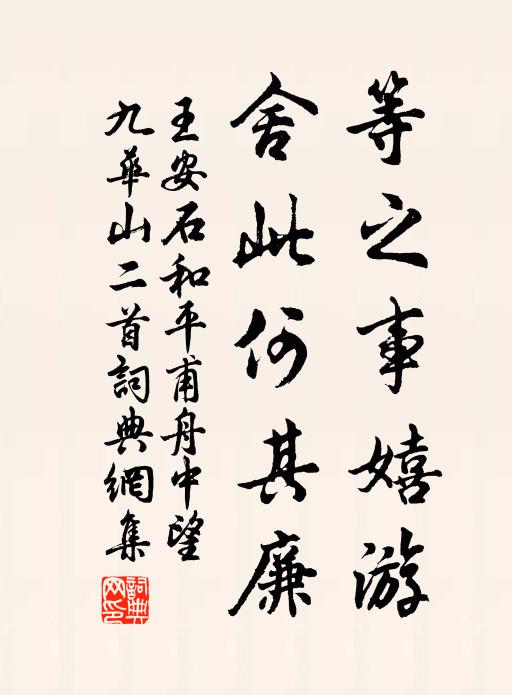 等之事嬉游
舍此何其廉
王安石和平甫舟中望
九華山二首詞典網集
詞典网印